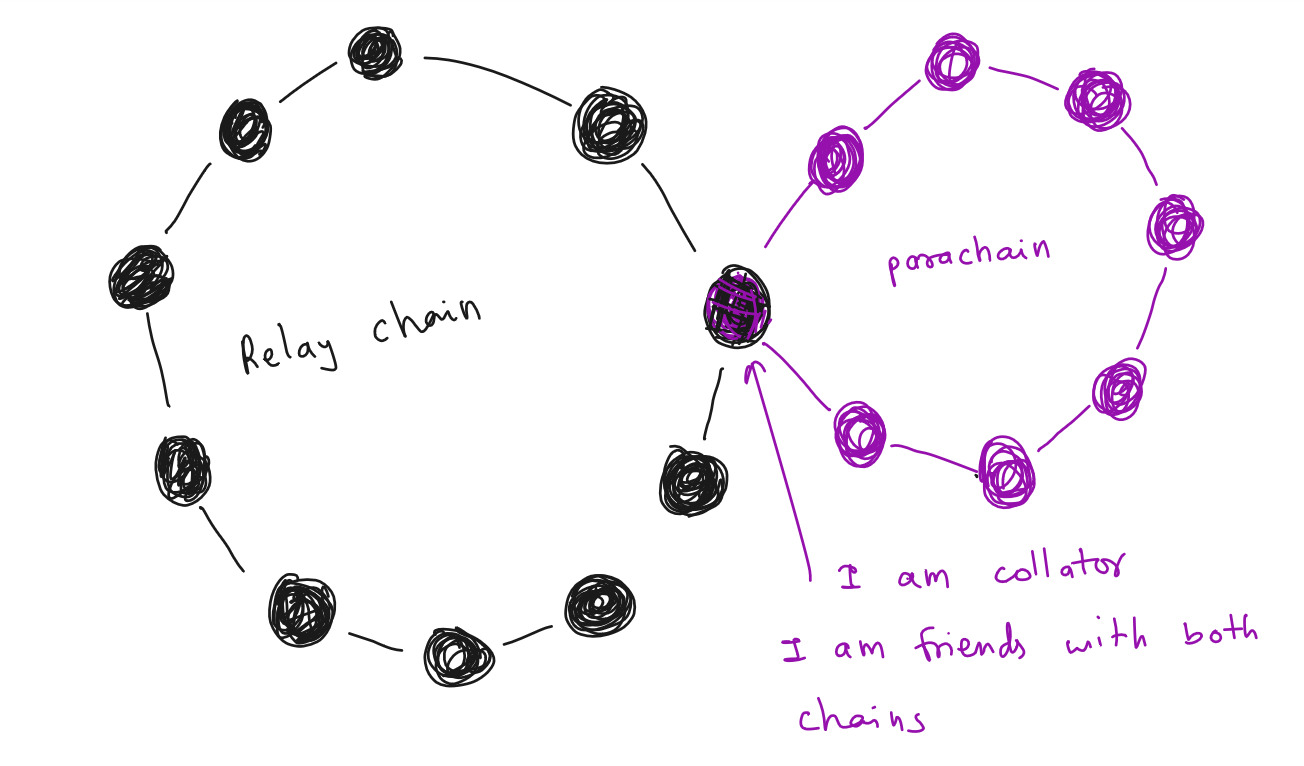 Relay chain
parachain
I am collator
I am friends with both
chains